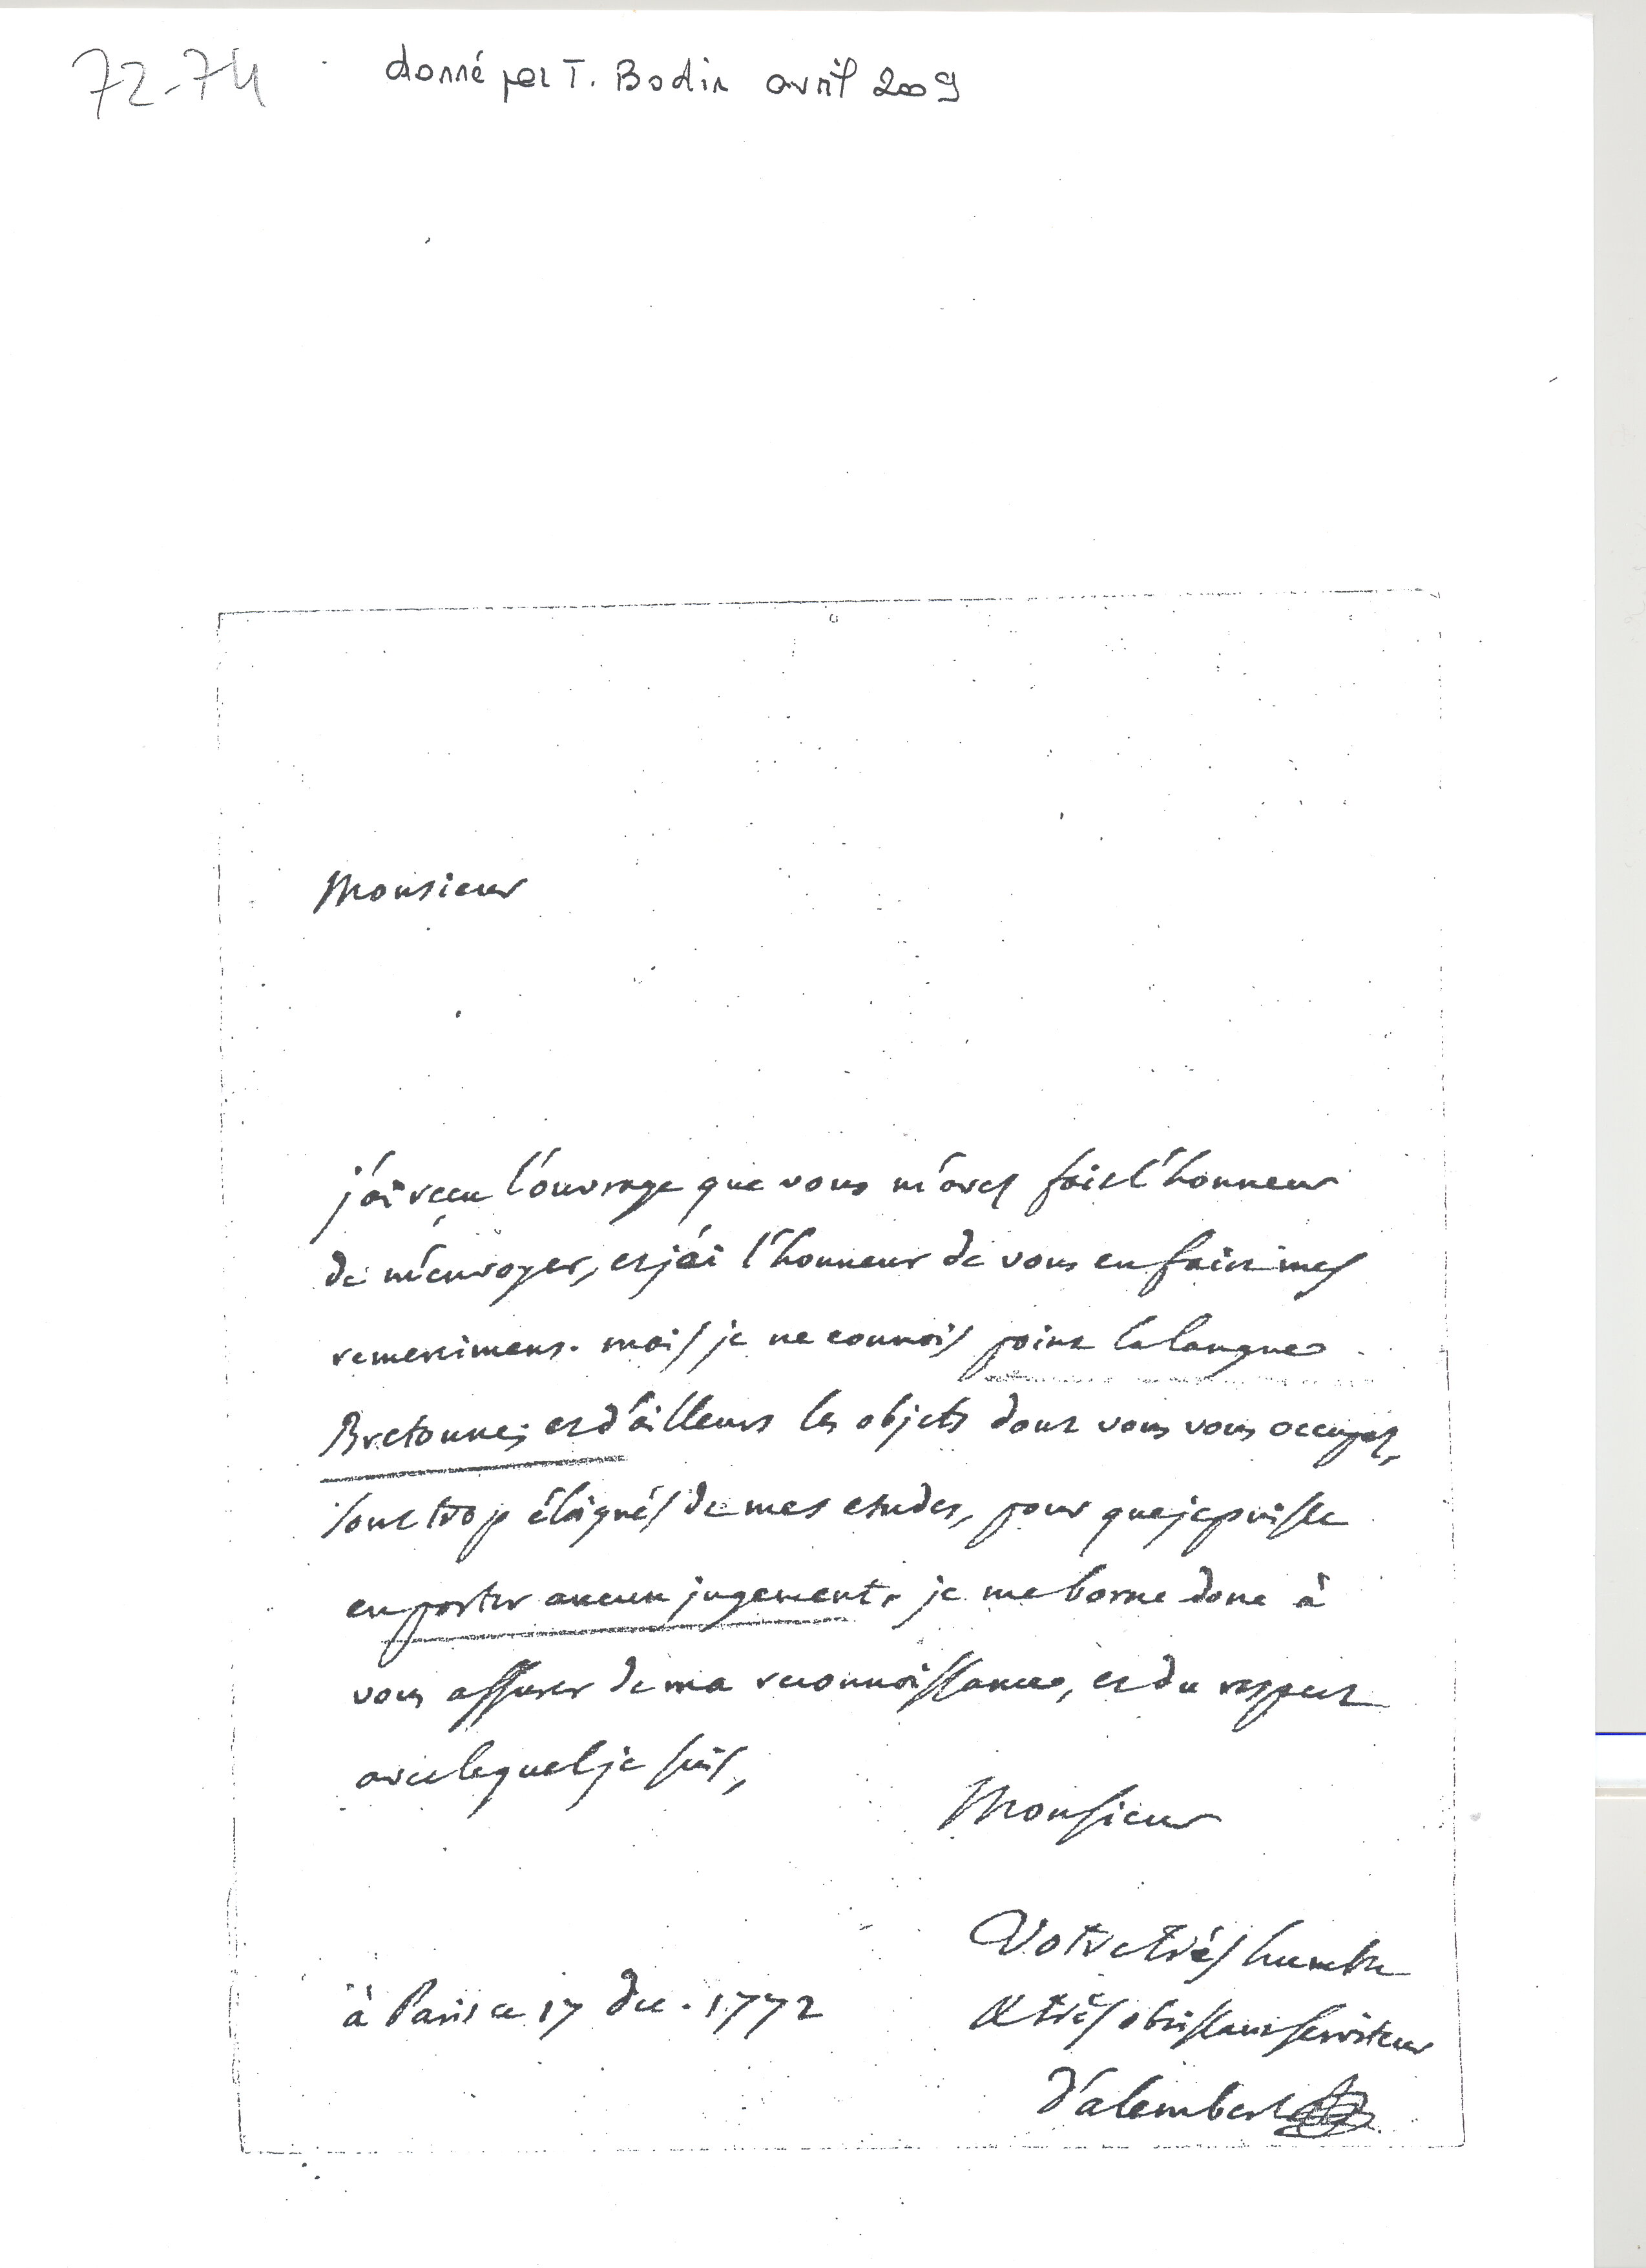 72-74
donné par T. Bodin avril 2009
Monsieur
j'ai recu l'ouvrage que vous m'avez fait l'honneur
de m'envoyer, et j'ai l'honneur de vous en faire mes
remercimens. mais je ne connois point la langue
Bretonne; et d'ailleurs les objets dont vous vous occupez,
sont trop éloignés de mes etudes, pour que je puisse
en porter aucun jugement. je me borne donc à
vous assurer de ma reconnoissance, et du respect
avec lequel je suis,
Monsieur
Votre très humble
& très obeissant serviteur
D'alembert
à Paris ce 17 dec. 1772